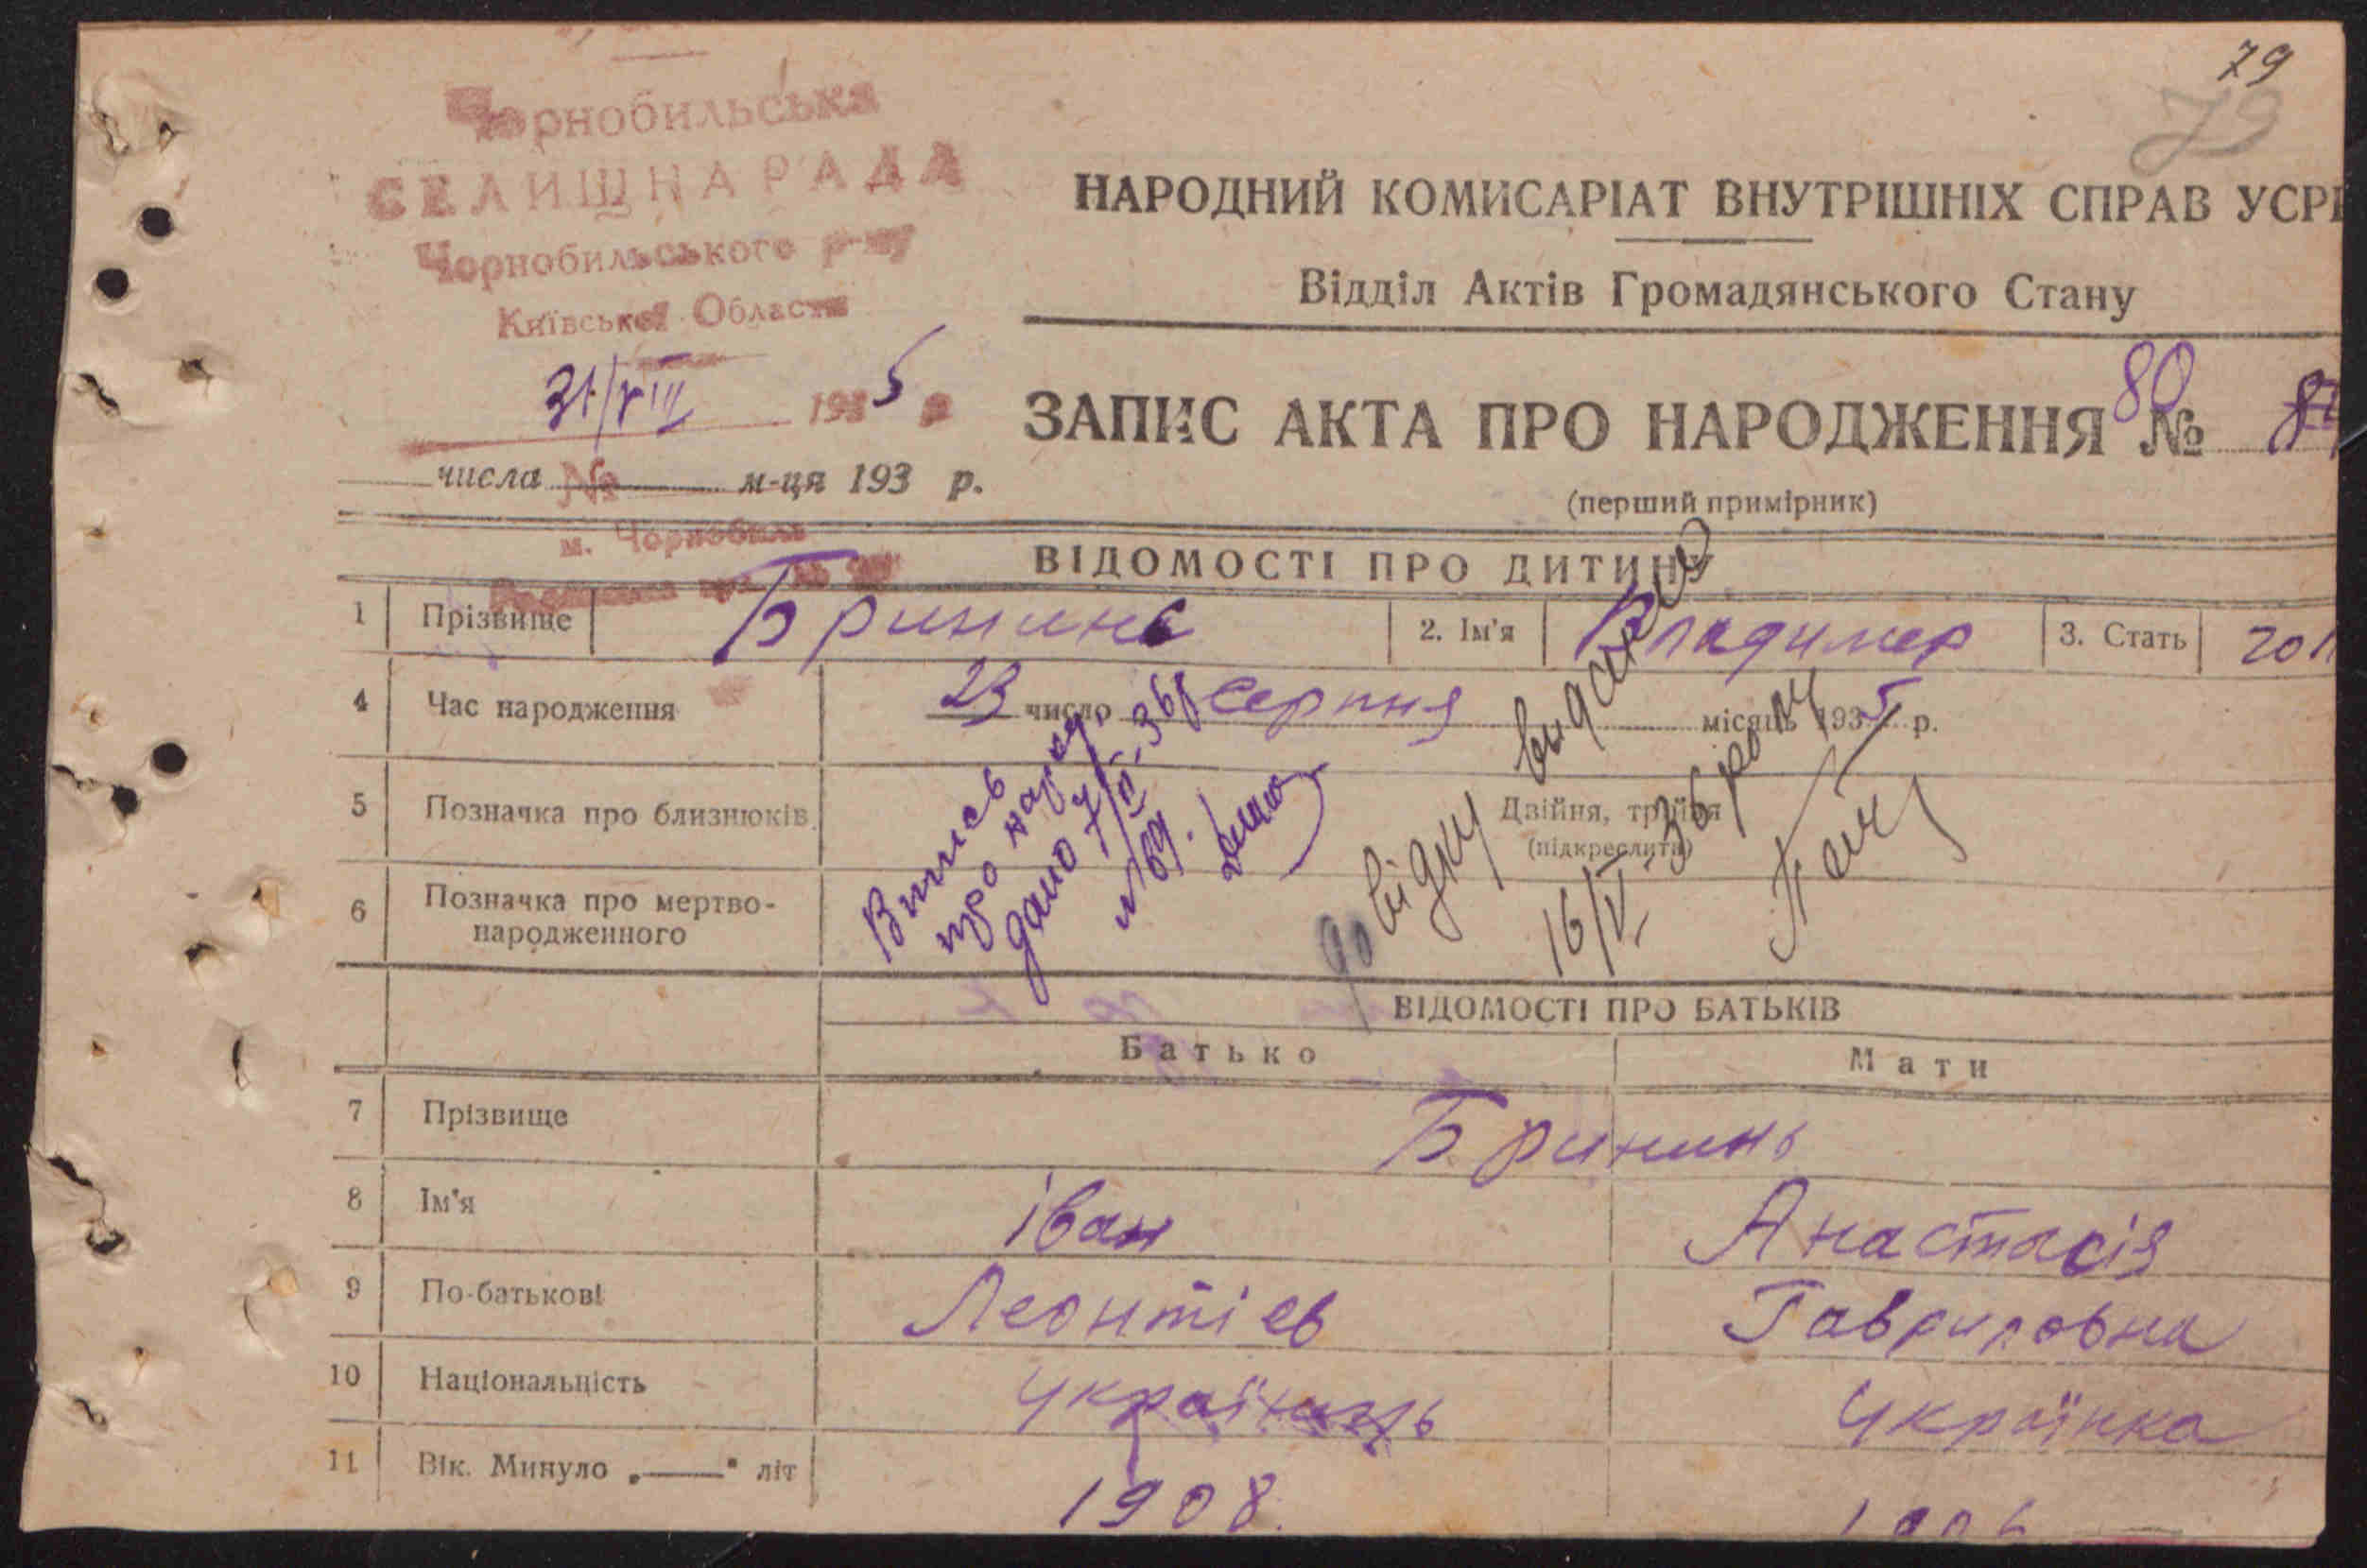 79
79
Чорнобильська
СЕЛИЩНА РАДА
Чорнобильського р-ну
Київської Области
31/VIII 1935 р
числа № м-ця 193 р.
м. Чорнобиль
НАРОДНИЙ КОМИСАРІАТ ВНУТРІШНІХ СПРАВ УСРР
Відділ Актів Громадянського Стану
ЗАПИС АКТА ПРО НАРОДЖЕННЯ № 80
(перший примірник)
ВІДОМОСТІ ПРО ДИТИНУ
1 Прізвище Брининь 2. Ім'я Владимер 3. Стать чол
4 Час народження 23 число Серпня місяць 1935 р.
5 Позначка про близнюків Двійня, трійня
(підкреслити)
6 Позначка про мертво-
народженного
Випись
про народ.
дано 7/ІІ-36р
№ 69.
довідку видано
16/V-36 року
ВІДОМОСТІ ПРО БАТЬКІВ
Батько Мати
7 Прізвище Брининь
8 Ім'я Іван Анастасія
9 По-батькові Леонтіев Гавриловна
10 Національність Українець Українка
11 Вік. Минуло „——" літ 1908. 1906